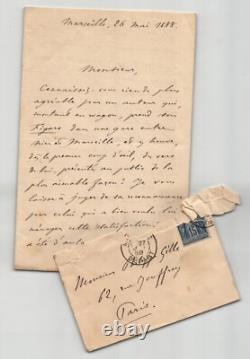 Marseille, 26 mai 1888.
Monsieur,
Connaissez-vous rien de plus
agréable pour un auteur qui,
montant en wagon, prend son
Figaro dans une gare entre
Nice et Marseille, et y trouve,
dès le premier coup d'œil, des vers de
lui, présentés au public de la
plus aimable façon? Je vous
laisse à juger de sa reconnaissance
pour celui qui a bien voulu lui
ménager cette satisfaction
Monsieur Gille
62, rue
Paris.
15